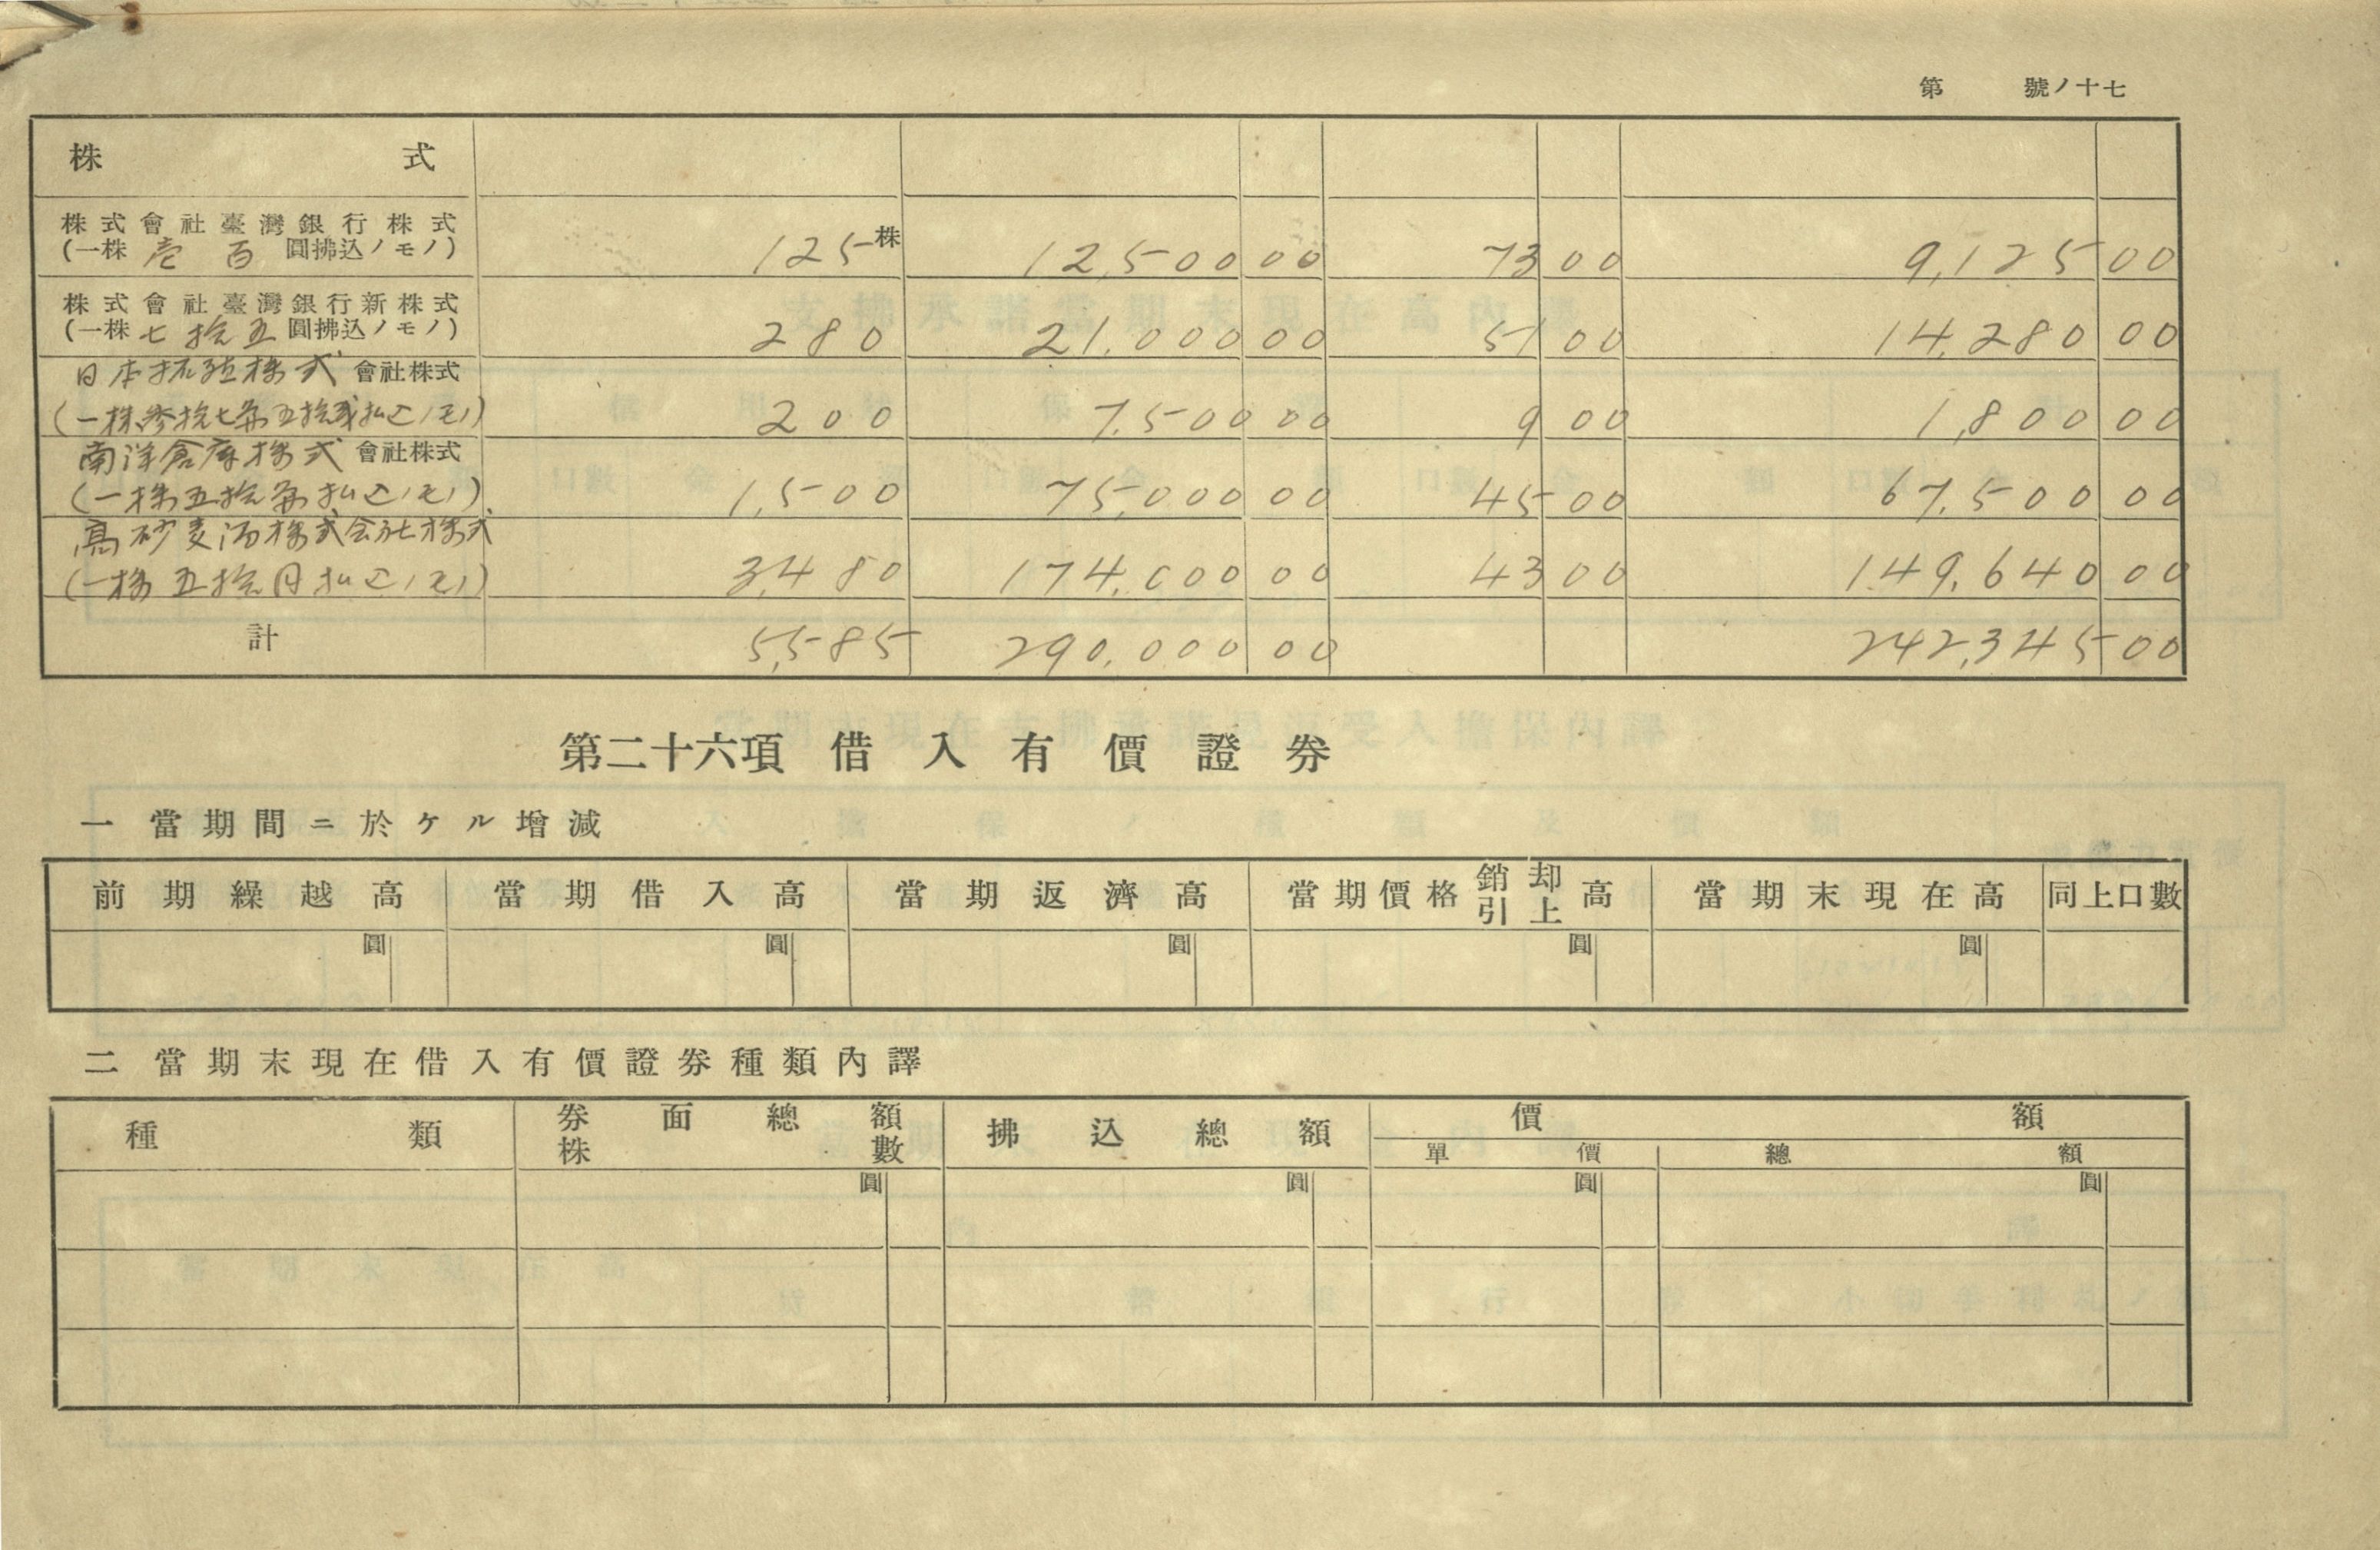 第 號ノ十七
株式
株式會社臺灣銀行株式 (一株壱百圓拂込ノモノ) 125株 12,500 00 73 00 9,125 00
株式會社臺灣銀行新株式 (一株七拾五圓拂込ノモノ) 280 21,000 00 51 00 14,280 00
日本拓殖株式會社株式 (一株参拾七円五拾銭払込ノモノ) 200 7,500 00 9 00 1,800 00
南洋倉庫株式會社株式 (一株五拾円払込ノモノ) 1,500 75,000 00 45 00 67,500 00
高砂麦酒株式会社株式 (一株五拾円払込ノモノ) 3,480 174,000 00 43 00 149,640 00
計 5,585 290,000 00 242,345 00
第二十六項 借入有價證券
一 當期間ニ於ケル增減
前期繰越高 當期借入高 當期返濟高 當期價格銷却引上高 當期末現在高 同上口數
圓 圓 圓 圓 圓
二 當期末現在借入有價證券種類內譯
種類 券面總額株數 拂込總額 價額
單價 總額
圓 圓 圓 圓